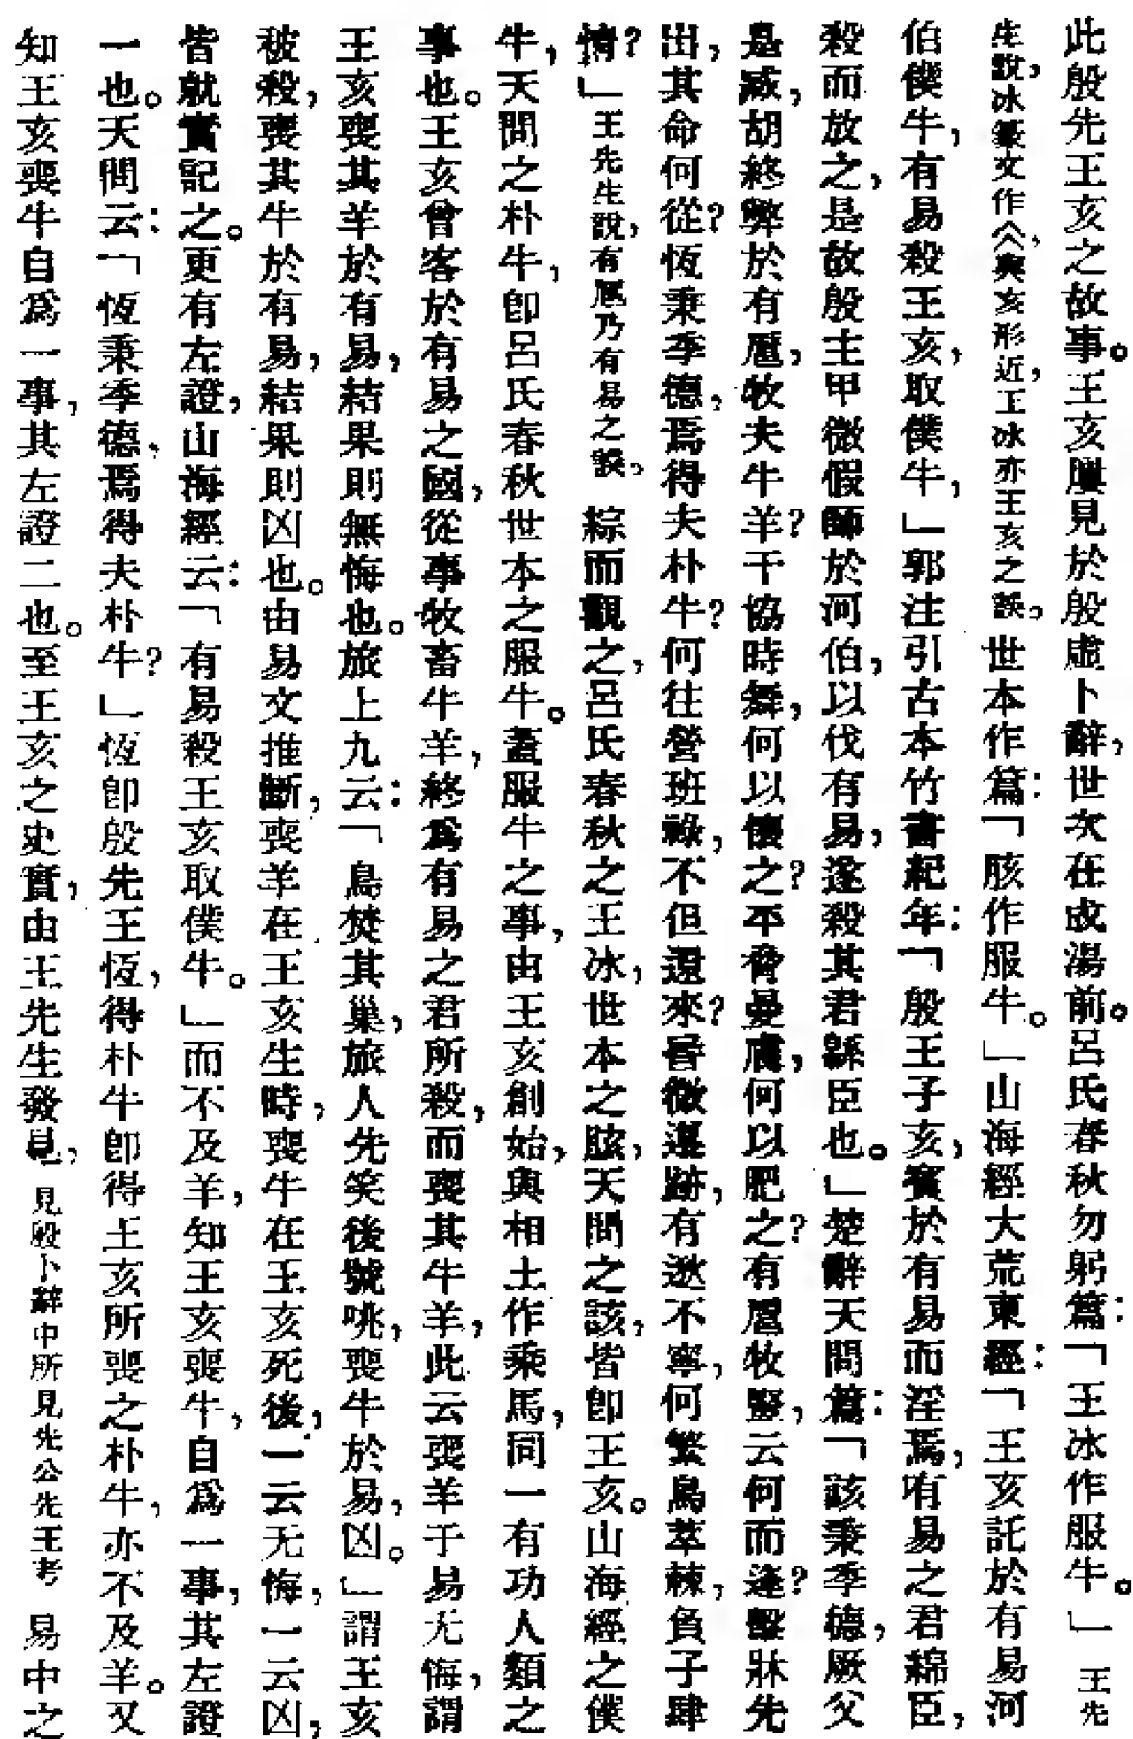 此殷先王亥之故事。王亥屢見於殷虛卜辭，世次在成湯前。呂氏春秋勿躬篇：「王冰作服牛。」王先
生說，冰篆文作仌，與亥形近，王冰亦王亥之誤。世本作篇：「胲作服牛。」山海經大荒東經：「王亥託於有易河
伯僕牛，有易殺王亥，取僕牛，」郭注引古本竹書紀年：「殷王子亥，賓於有易而淫焉，有易之君緜臣，
殺而放之，是故殷主甲微假師於河伯，以伐有易，遂殺其君緜臣也。」楚辭天問篇：「該秉季德，厥父
是臧，胡終弊於有扈，牧夫牛羊？干協時舞，何以懷之？平脅曼膚，何以肥之？有扈牧豎，云何而逢？擊牀先
出，其命何從？恆秉季德，焉得夫朴牛？何往營班祿，不但還來？昏微遵跡，有逖不寧，何繁鳥萃棘，負子肆
情？」王先生說，有扈乃有易之誤。綜而觀之，呂氏春秋之王冰，世本之胲，天問之該，皆卽王亥。山海經之僕
牛，天問之朴牛，卽呂氏春秋世本之服牛。蓋服牛之事，由王亥創始，與相土作乘馬，同一有功人類之
事也。王亥曾客於有易之國，從事牧畜牛羊，終爲有易之君所殺，而喪其牛羊，此云喪羊于易无悔，謂
王亥喪其羊於有易，結果則無悔也。旅上九云：「鳥焚其巢，旅人先笑後號咷，喪牛於易，凶。」謂王亥
被殺，喪其牛於有易，結果則凶也。由易文推斷，喪羊在王亥生時，喪牛在王亥死後，一云无悔，一云凶，
皆就實記之。更有左證，山海經云：「有易殺王亥取僕牛。」而不及羊，知王亥喪牛，自爲一事，其左證
一也。天問云：「恆秉季德，焉得夫朴牛？」恆卽殷先王恆，得朴牛卽得王亥所喪之朴牛，亦不及羊。又
知王亥喪牛自爲一事，其左證二也。至王亥之史實，由王先生發見，見殷卜辭中所見先公先王考 易中之